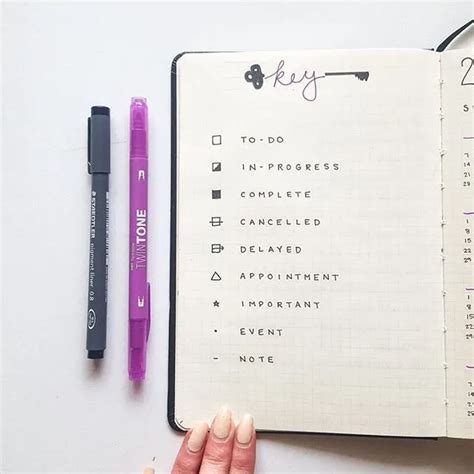 key
TO-DO
IN-PROGRESS
COMPLETE
CANCELLED
DELAYED
APPOINTMENT
IMPORTANT
EVENT
NOTE
STAEDTLER
pigment liner 0.8
TWINTONE
2
7
14
21
28
1
8